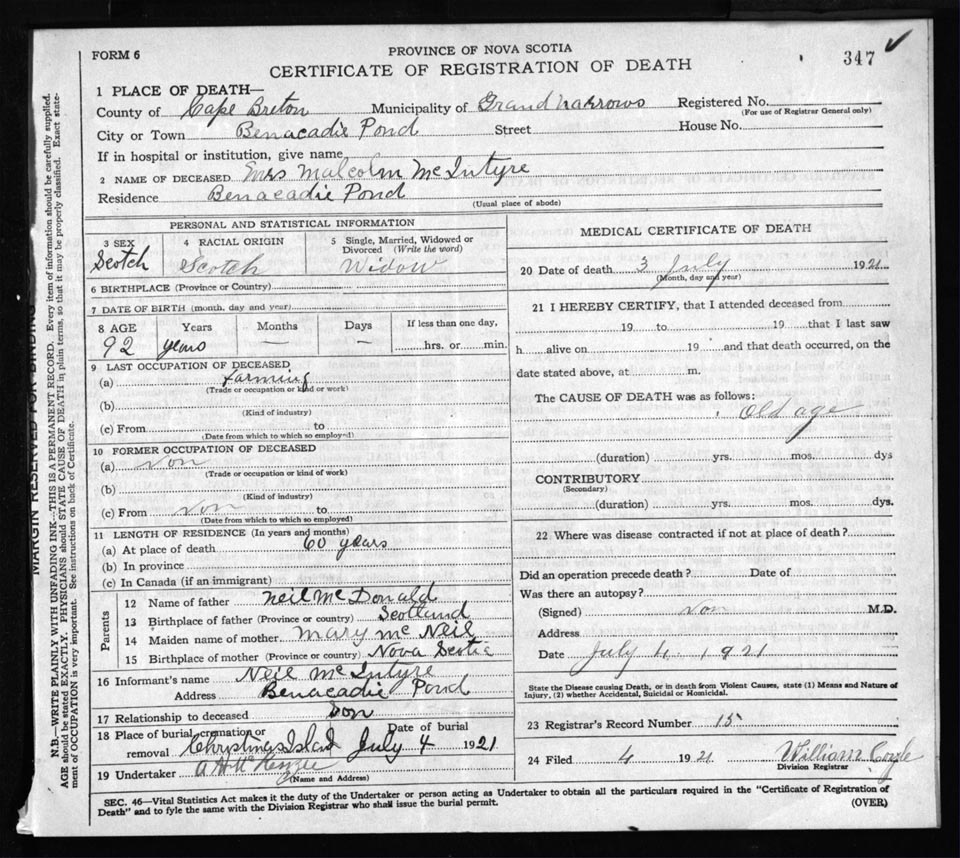 FORM 6
PROVINCE OF NOVA SCOTIA
347 ✓
CERTIFICATE OF REGISTRATION OF DEATH
1 PLACE OF DEATH—
County of Cape Breton Municipality of Grand Narrows Registered No.
(For use of Registrar General only)
City or Town Benacadie Pond Street House No.
If in hospital or institution, give name
2 NAME OF DECEASED Mrs Malcolm McIntyre
Residence Benacadie Pond
(Usual place of abode)
PERSONAL AND STATISTICAL INFORMATION
3 SEX 4 RACIAL ORIGIN 5 Single, Married, Widowed or Divorced (Write the word)
Scotch Scotch Widow
6 BIRTHPLACE (Province or Country)
7 DATE OF BIRTH (month, day and year)
8 AGE Years Months Days If less than one day,
92 years — — hrs. or min.
9 LAST OCCUPATION OF DECEASED
(a) Farming
(Trade or occupation or kind or work)
(b)
(Kind of industry)
(c) From to
(Date from which to which so employed)
10 FORMER OCCUPATION OF DECEASED
(a) Non
(Trade or occupation or kind of work)
(b)
(Kind of industry)
(c) From Non to
(Date from which to which so employed)
11 LENGTH OF RESIDENCE (In years and months)
(a) At place of death 60 years
(b) In province
(c) In Canada (if an immigrant)
Parents
12 Name of father Neil McDonald
13 Birthplace of father (Province or country) Scotland
14 Maiden name of mother Mary McNeil
15 Birthplace of mother (Province or country) Nova Scotia
16 Informant's name Neil McIntyre
Address Benacadie Pond
17 Relationship to deceased Son
18 Place of burial, cremation or removal Christmas Island Date of burial July 4 1921
19 Undertaker A H McKenzie
(Name and Address)
MEDICAL CERTIFICATE OF DEATH
20 Date of death 3 July 1921
(Month, day and year)
21 I HEREBY CERTIFY, that I attended deceased from
19 to 19 that I last saw
h alive on 19 and that death occurred, on the
date stated above, at m.
The CAUSE OF DEATH was as follows:
Old age
(duration) yrs. mos. dys
CONTRIBUTORY
(Secondary)
(duration) yrs. mos. dys.
22 Where was disease contracted if not at place of death?
Did an operation precede death? Date of
Was there an autopsy?
(Signed) Non M.D.
Address
Date July 4 1921
State the Disease causing Death, or in death from Violent Causes, state (1) Means and Nature of
Injury, (2) whether Accidental, Suicidal or Homicidal.
23 Registrar's Record Number 15
24 Filed 4 1921 William
Division Registrar
SEC. 46—Vital Statistics Act makes it the duty of the Undertaker or person acting as Undertaker to obtain all the particulars required in the "Certificate of Registration of
Death" and to fyle the same with the Division Registrar who shall issue the burial permit.
(OVER)
MARGIN RESERVED FOR BINDING
N.B.—WRITE PLAINLY WITH UNFADING INK—THIS IS A PERMANENT RECORD. Every item of information should be carefully supplied.
AGE should be stated EXACTLY. PHYSICIANS should STATE CAUSE OF DEATH in plain terms, so that it may be properly classified. Exact state-
ment of OCCUPATION is very important. See instructions on back of Certificate.